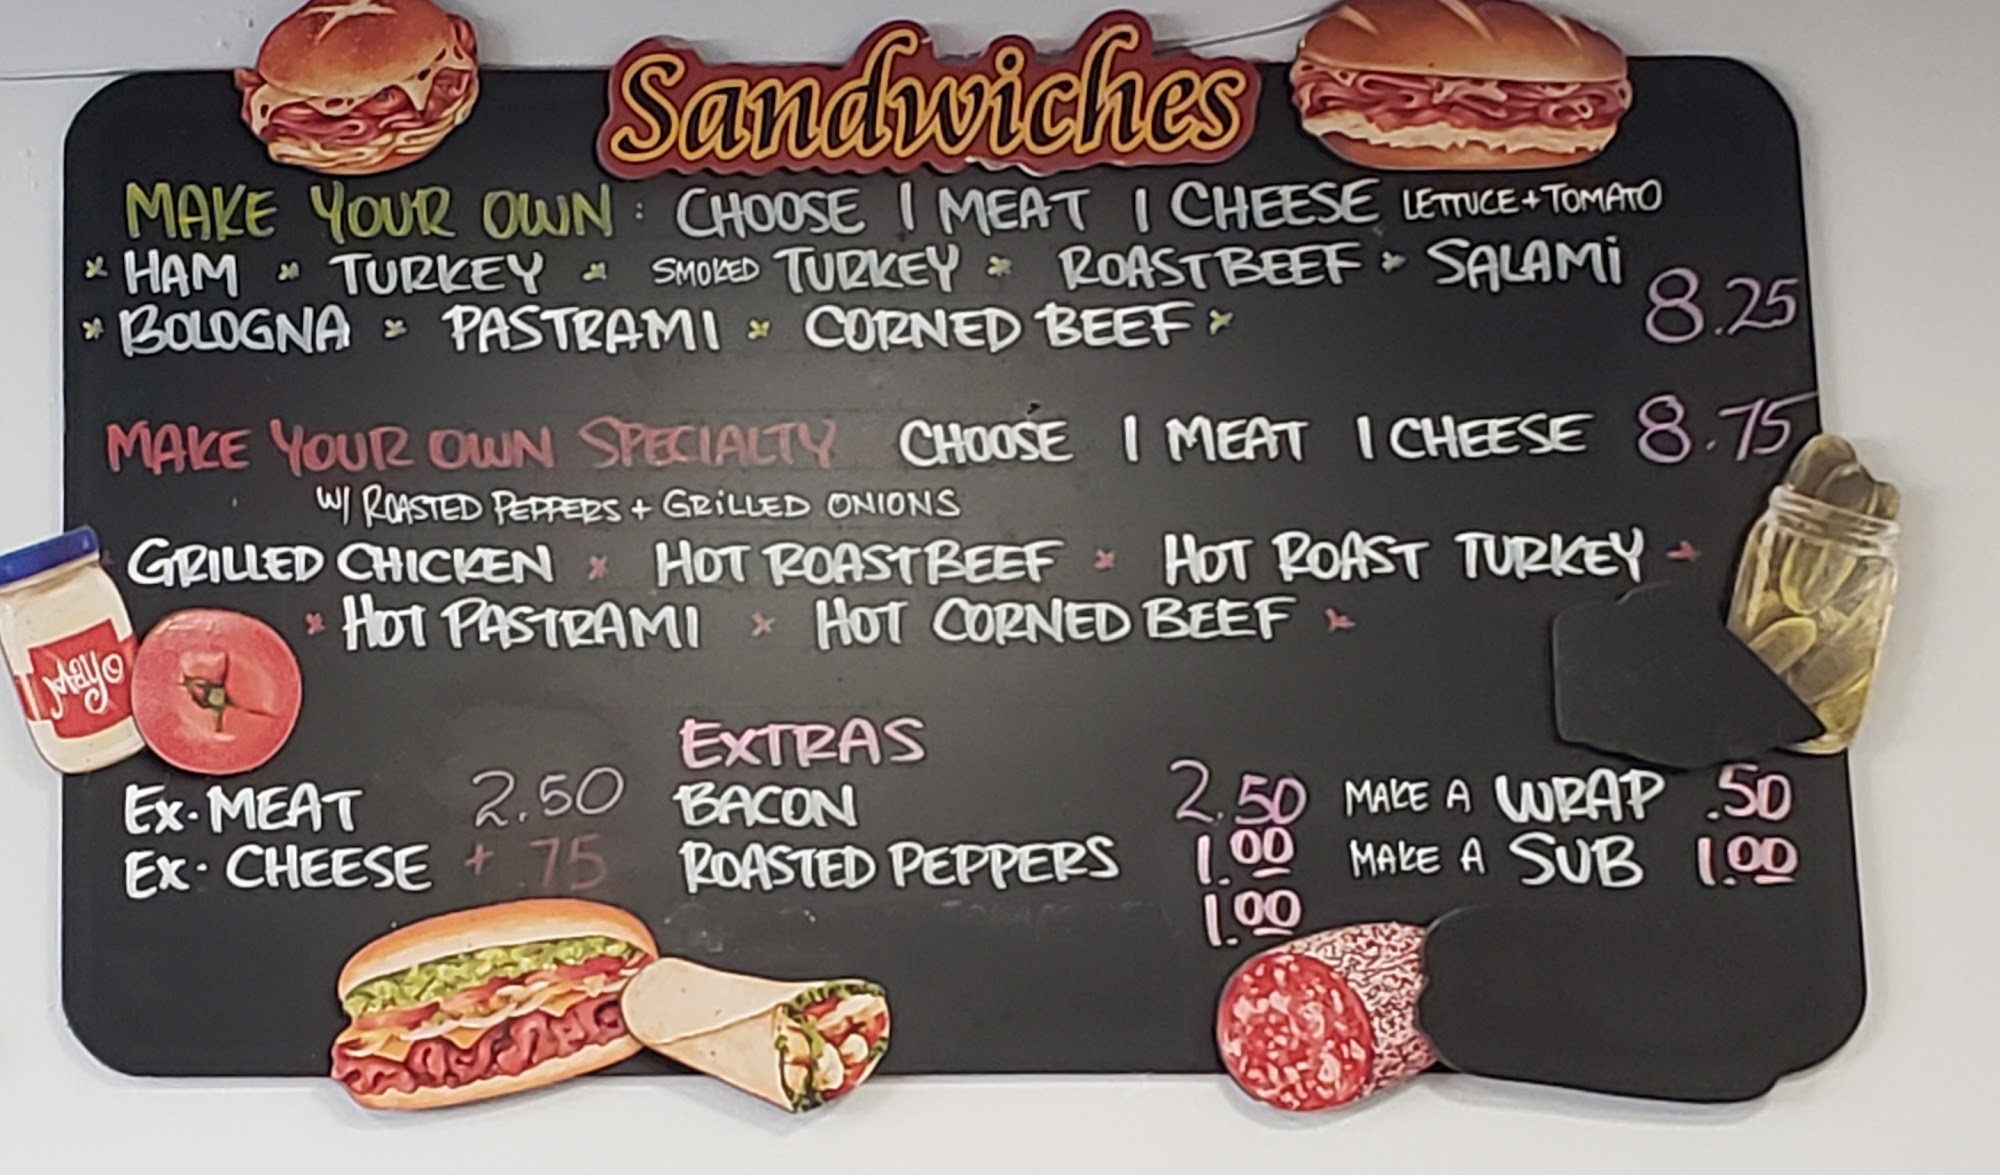 Sandwiches
MAKE YOUR OWN: CHOOSE 1 MEAT 1 CHEESE LETTUCE + TOMATO
HAM TURKEY SMOKED TURKEY ROAST BEEF SALAMi
8.25
BOLOGNA PASTRAMI CORNED BEEF
MAKE YOUR OWN SPECIALTY CHOOSE 1 MEAT 1 CHEESE 8.75
W/ ROASTED PEPPERS + GRiLLED ONIONS
GRILLED CHICKEN HOT ROAST BEEF HOT ROAST TURKEY
HOT PASTRAMI HOT CORNED BEEF
Mayo
EXTRAS
EX. MEAT 2.50 BACON 2.50 MAKE A WRAP .50
EX. CHEESE + .75 ROASTED PEPPERS 1.00 MAKE A SUB 1.00
1.00